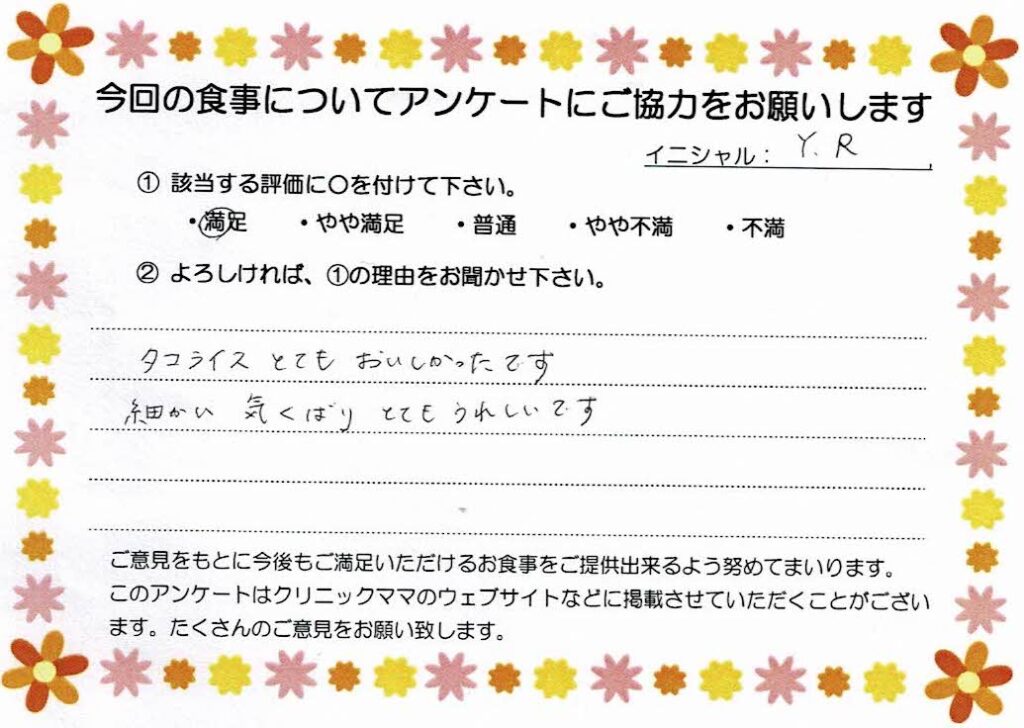 今回の食事についてアンケートにご協力をお願いします
イニシャル： Y. R
① 該当する評価に〇を付けて下さい。
・満足 ・やや満足 ・普通 ・やや不満 ・不満
② よろしければ、①の理由をお聞かせ下さい。
タコライス とても おいしかったです
細かい 気くばり とてもうれしいです
ご意見をもとに今後もご満足いただけるお食事をご提供出来るよう努めてまいります。
このアンケートはクリニックママのウェブサイトなどに掲載させていただくことがござい
ます。たくさんのご意見をお願い致します。